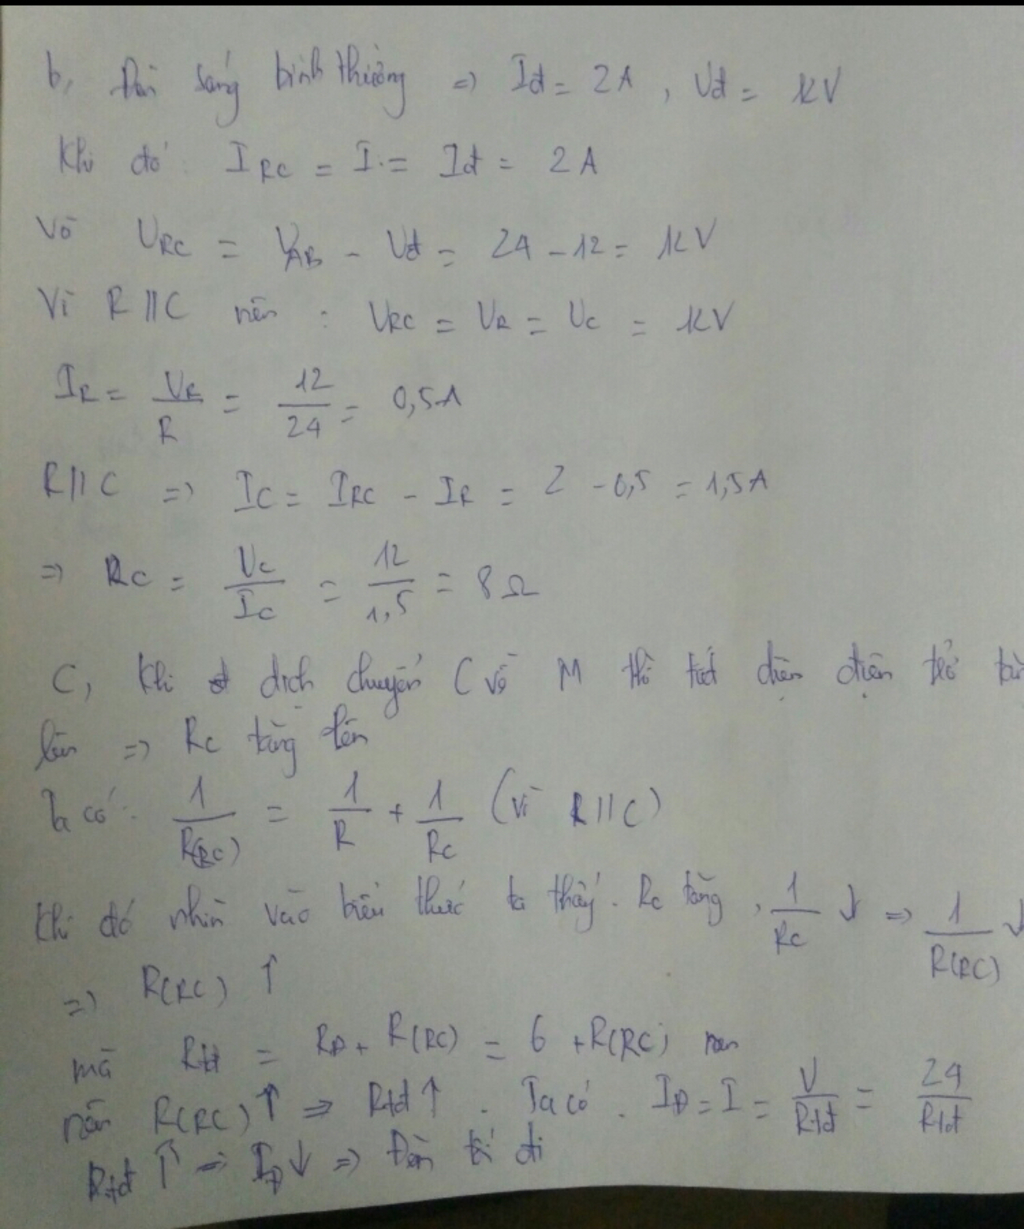 b, Đèn sáng bình thường => Iđ = 2A, Uđ = 12V
Khi đó: I RC = I = Iđ = 2A
Và URC = UAB - Uđ = 24 - 12 = 12V
Vì R // C nên : URC = UR = UC = 12V
IR = UR/R = 12/24 = 0,5A
R // C => IC = IRC - IR = 2 - 0,5 = 1,5A
=> RC = UC/IC = 12/1,5 = 8Ω
C, Khi dịch chuyển C về M thì diện điện trở
lên => Rc tăng lên
Ta có: 1/R(RC) = 1/R + 1/Rc (Vì R // C)
Khi đó nhìn vào biểu thức ta thấy. Rc tăng, 1/Rc ↓ => 1/R(RC) ↓
=> R(RC) ↑
mà Rtđ = RĐ + R(RC) = 6 + R(RC)
nên R(RC) ↑ => Rtđ ↑. Ta có. IĐ = I = U/Rtđ = 24/Rtđ
Rtđ ↑ => IĐ ↓ => Đèn tối đi